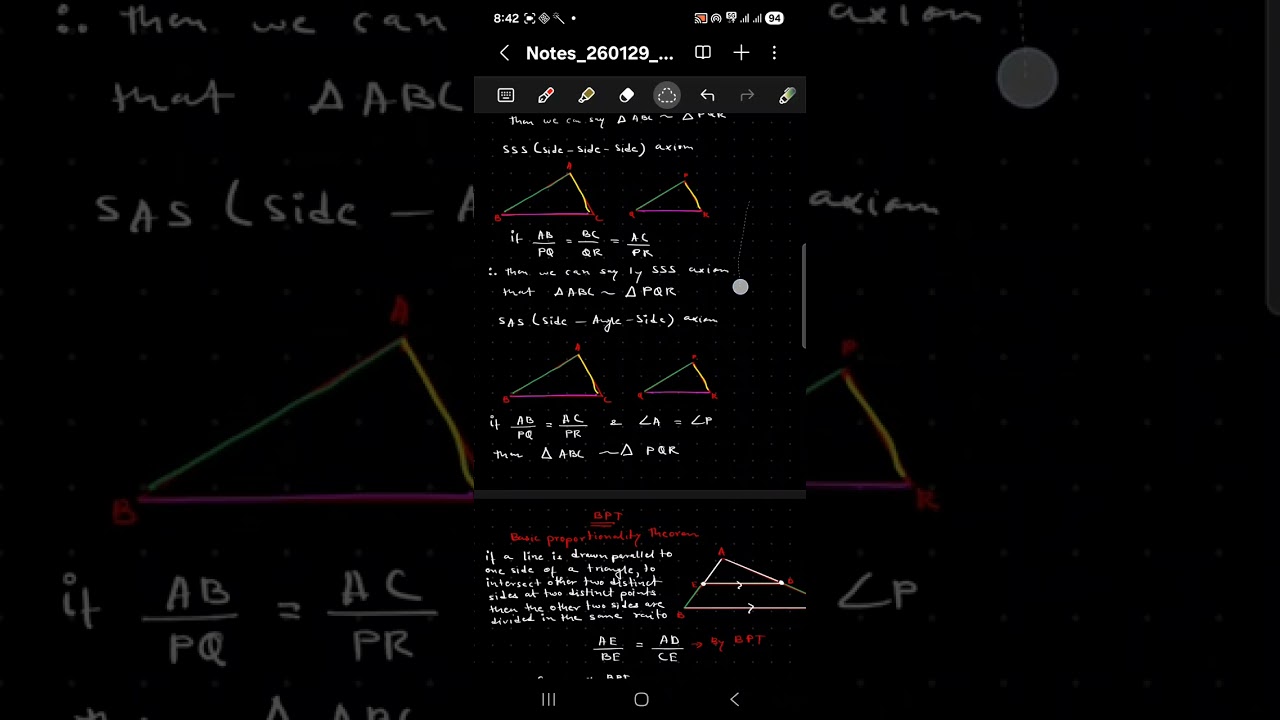 ∴ then we can
axiom
that ΔABC
SAS (Side – A
axiom
A
P
B
R
if AB/PQ = AC/PR
∠P
8:42
94
Notes_260129_...
then we can say ΔABC ~ ΔPQR
SSS (Side-side-side) axiom
A
P
B
C
Q
R
if AB/PQ = BC/QR = AC/PR
∴ then we can say by SSS axiom
that ΔABC ~ ΔPQR
SAS (Side – Angle – Side) axiom
A
P
B
C
Q
R
if AB/PQ = AC/PR & ∠A = ∠P
then ΔABC ~ Δ PQR
BPT
Basic proportionality Theorem
if a line is drawn parallel to
one side of a triangle, to
intersect other two distinct
sides at two distinct points
then the other two sides are
divided in the same raito
A
E
D
B
AE/BE = AD/CE → By BPT